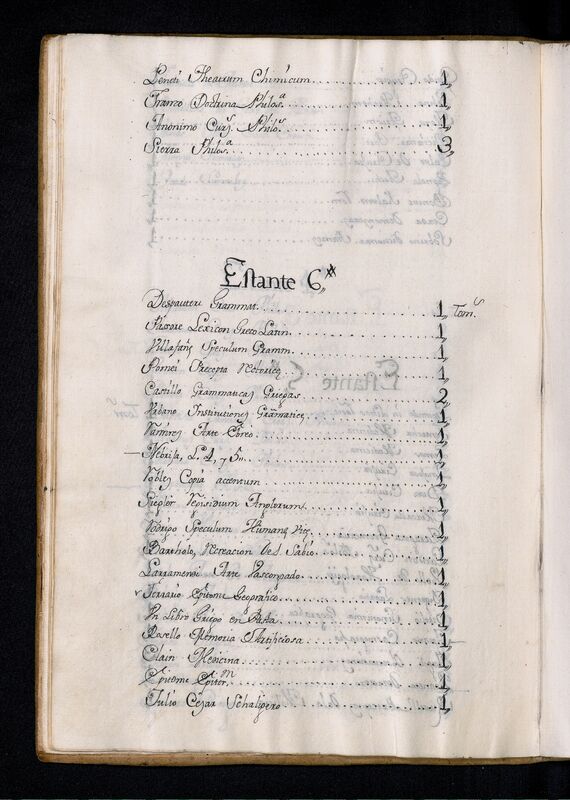 Theatrum Chimicum 1
Franzo Doctrina Philos.ª 1
Anonimo Curs. Philos. 1
Philos.ª 3
Estante 6
Despauteri Grammat. 1 Tom.s
Lexicon Greco Latin. 1
Villafañe Speculum Gramm. 1
Pomei Precepta Retorice 1
Castillo Grammaticas Griegas 2
Urbano Institutiones Grammatice 1
Ramirez Arte Ebreo 1
Nebrija, L. 4, y 5 1
Robles Copia accentum 1
Siegler 1
Rodrigo Speculum Humane Vite 1
Bartholo, Recreacion del Sabio 1
Larramendi Arte Vascongado 1
Ferrario Epitome Geografico 1
Un Libro Griego en Pasta 1
Rosello Memoria Artificiosa 1
Clain Medicina 1
Epitome 1
Julio Cesar Schaligero 1